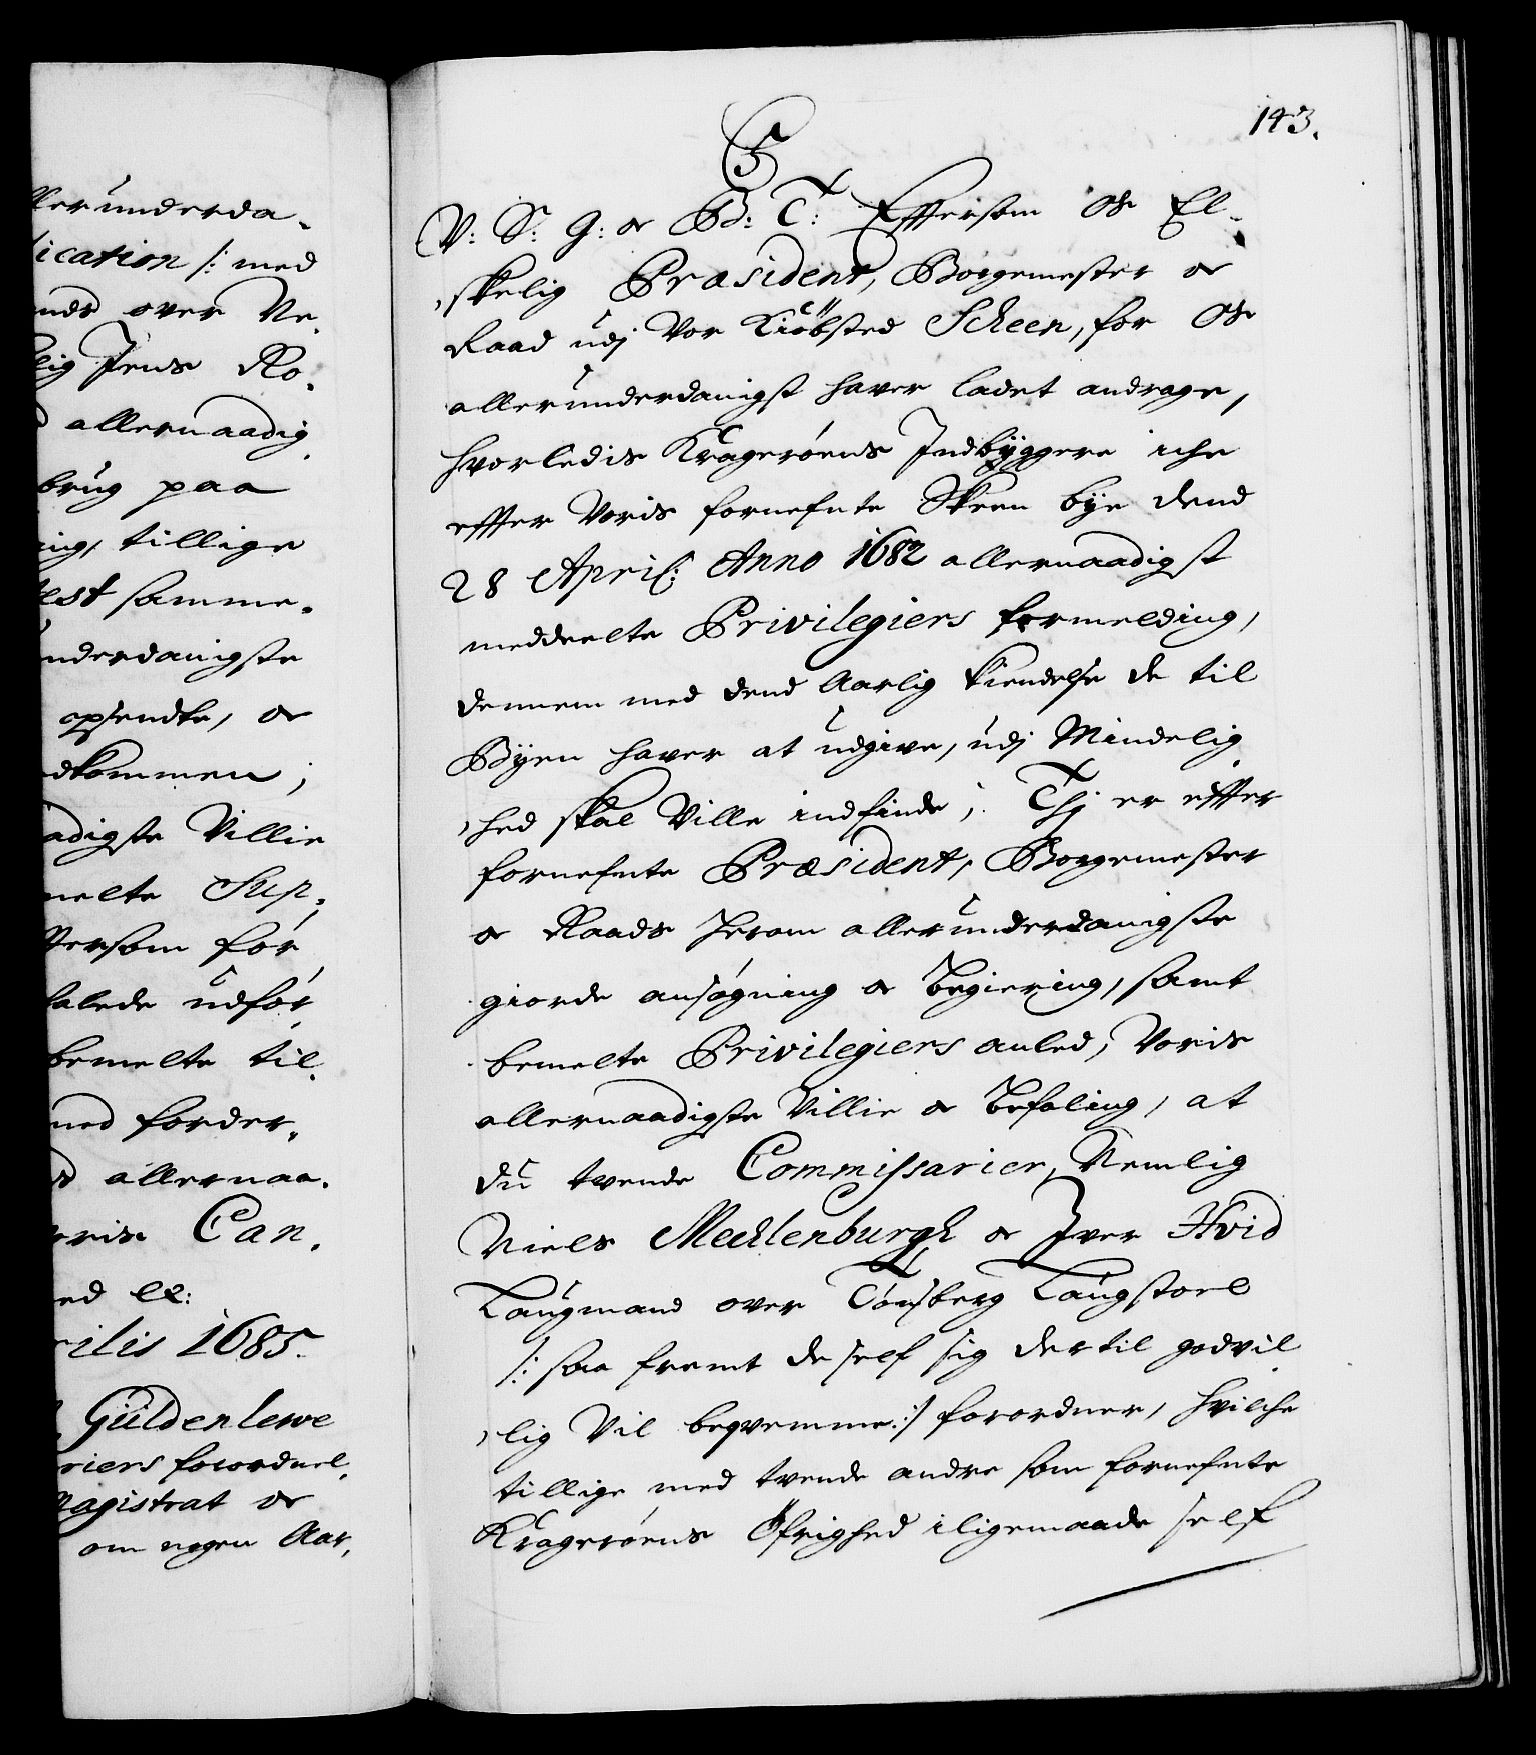 llerunderda-
ication /: med
ends over Ne-
lig Jens Ro-
allernaadig-
brug paa
ing, tillige
est samme-
nderdanigste
opsendte, oc
dkommen;
adigste Villie
melte Sup-
ttersom for
talede udfør
bemelte til-
med forder-
allernaa-
oris Can-
ed &:
rilis 1685.
Güldenlewe
riers forordnel-
Magistrat oc
om nogen Aar-
143.
C5
V: S: G: oc B: T: Eftersom Os El-
skelig Præsident, Borgemester oc
Raad udj Vor Kiøbsted Scheen, for Os
allerunderdanigst haver ladet andrage,
hvorledis Kragerøens Indbyggere iche
effter Voris fornefnte Skeen bye dend
28 April: Anno 1682 allernaadigst
meddeelte Privilegiers formelding,
dennem med dend Aarlig kiendelse de til
Byen haver at udgive, udj Mindelig-
hed skal Ville indfinde; Thj er effter
fornefnte Præsident, Borgemester
oc Raads herom allerunderdanigste
giorde ansøgning oc begiering, samt
bemelte Privilegiers anled, Voris
allernaadigste Villie oc befaling, at
du tvende Commissarier, Nemlig
Niels Mecklenburgh oc Iver Hvid
Laugmand over Tønsberg Laugstoel
/: saa fremt de self sig dertil godvil-
lig Vil beqvemme :/ forordner, hvilche
tillige med tvende andre som fornefnte
Kragerøens Øfrighed iligemaade self